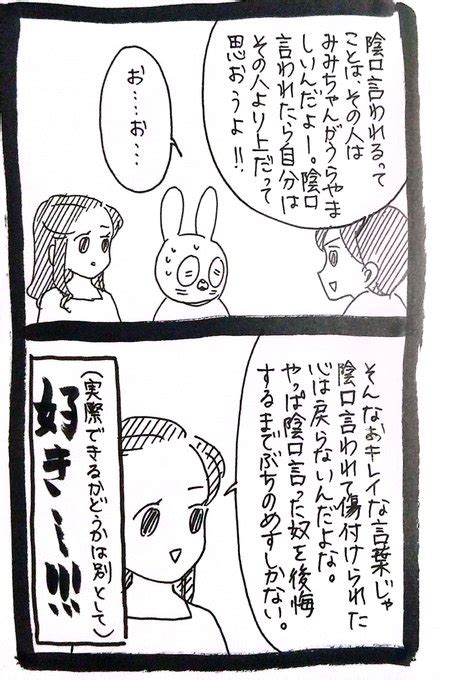 陰口言われるって
ことは、その人は
みみちゃんがうらやま
しいんだよー。陰口
言われたら自分は
その人より上だって
思おうよ!!
お……お…
そんなおキレイな言葉じゃ
陰口言われて傷付けられた
心は戻らないんだよな。
やっぱ陰口言った奴を後悔
するまでぶちのめすしかない。
(実際できるかどうかは別として)
好きー!!!